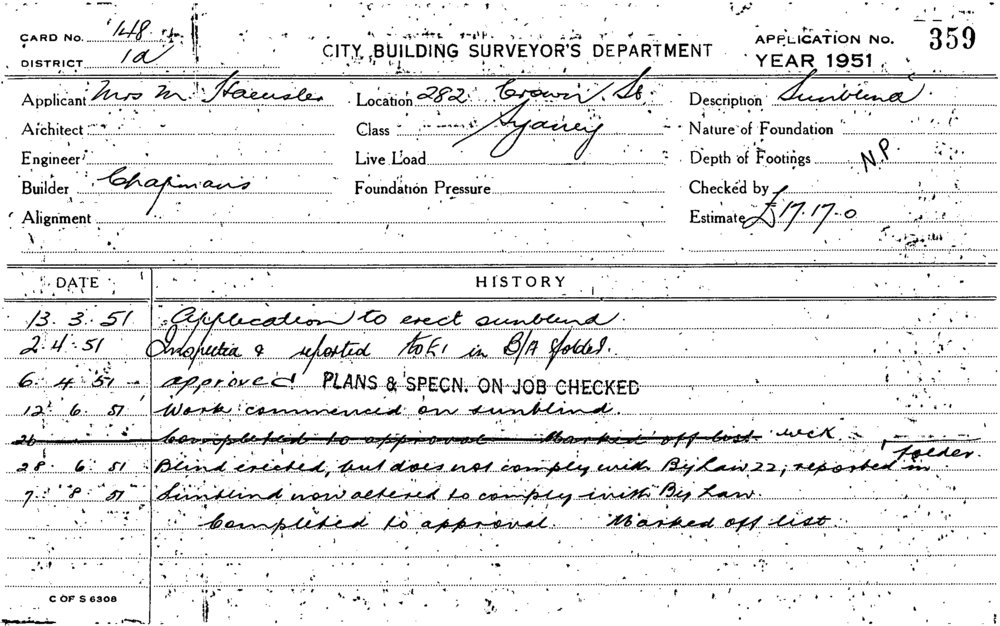 CARD No. 148
DISTRICT 1a
CITY BUILDING SURVEYOR'S DEPARTMENT
APPLICATION No. 359
YEAR 1951
Applicant Mrs M. Haeusler Location 282 Crown St. Description Sunblind
Architect Class Sydney Nature of Foundation
Engineer Live Load Depth of Footings N.P.
Builder Chapmans Foundation Pressure Checked by
Alignment Estimate £17.17.0
DATE HISTORY
13. 3. 51 Application to erect sunblind.
2. 4. 51 & reported in B/A folder.
6. 4. 51 approved PLANS & SPECN. ON JOB CHECKED
12. 6. 51 Work commenced on sunblind.
26 Completed to approval Marked off list
28. 6. 51 Blind erected, but does not comply with By Law 22, reported in folder.
7. 8. 51 Sunblind now altered to comply with By Law.
Completed to approval. Marked off list
C OF S 6308